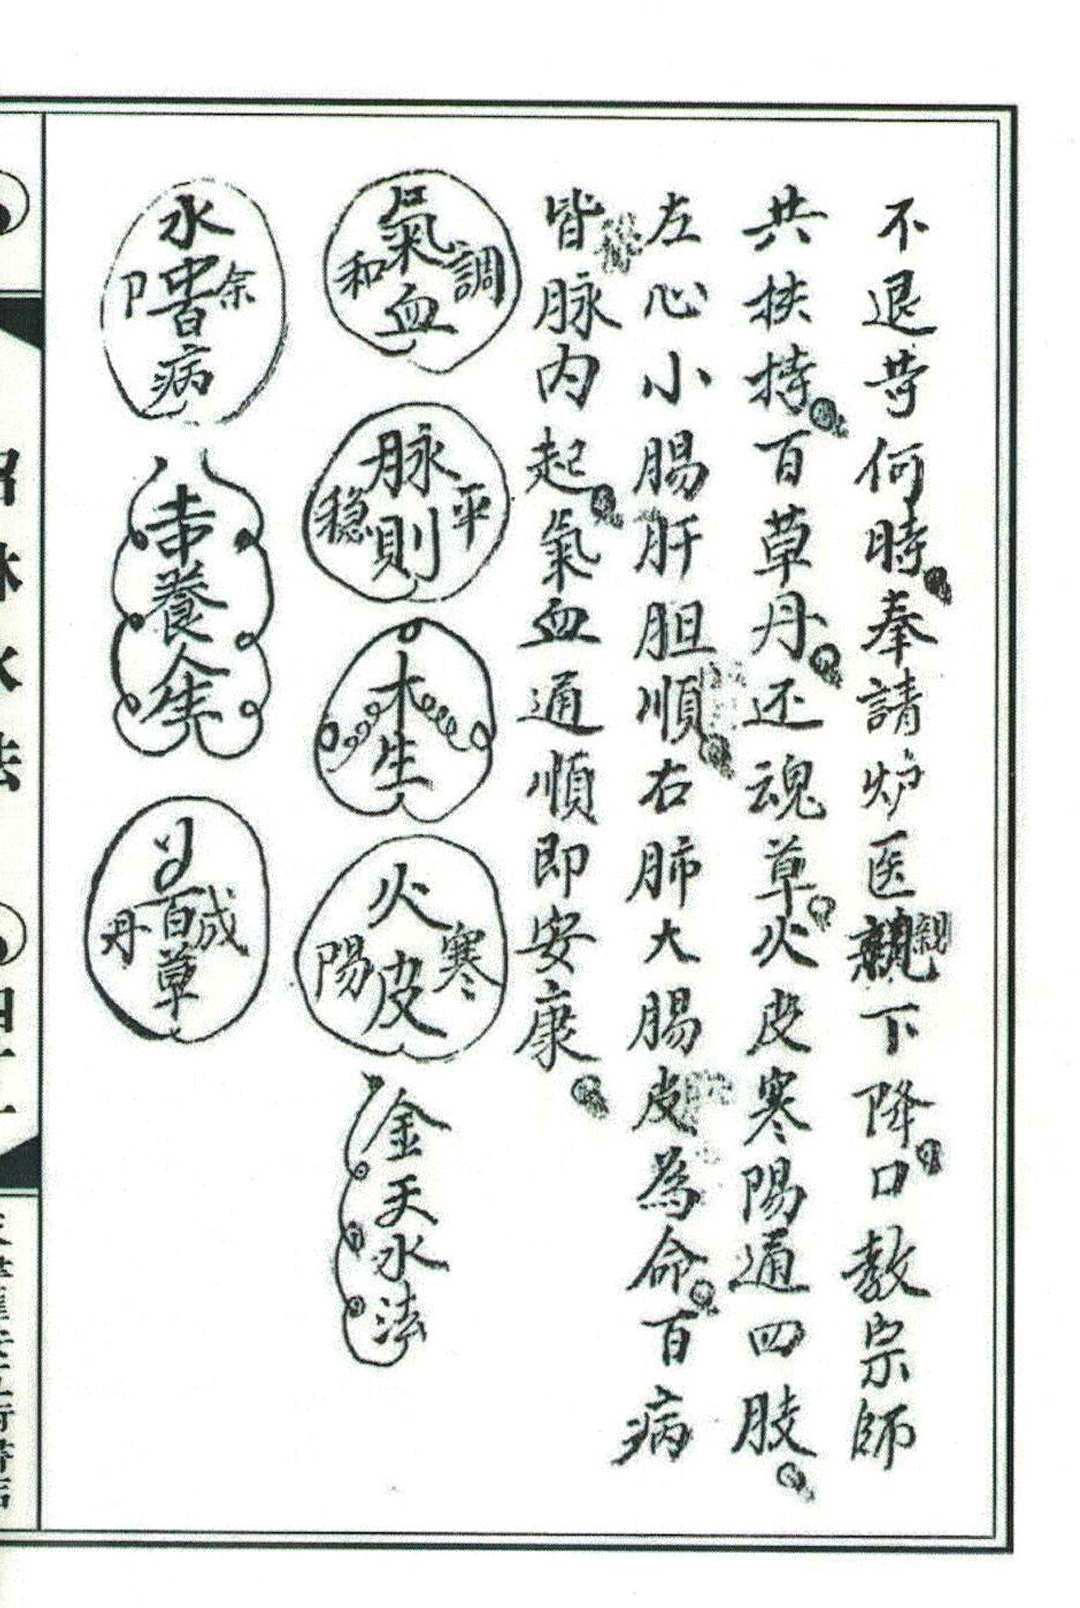 不退苛何時奉請炉医親下降口教宗師
親
共扶持百草丹还魂草火皮寒陽通四肢
左心小腸肝胆順右肺大腸皮為命百病
皆脉内起氣血通順即安康
氣血調和
脉則平穏
大生
火皮寒陽
金天水法
水
病
養生
百草成丹